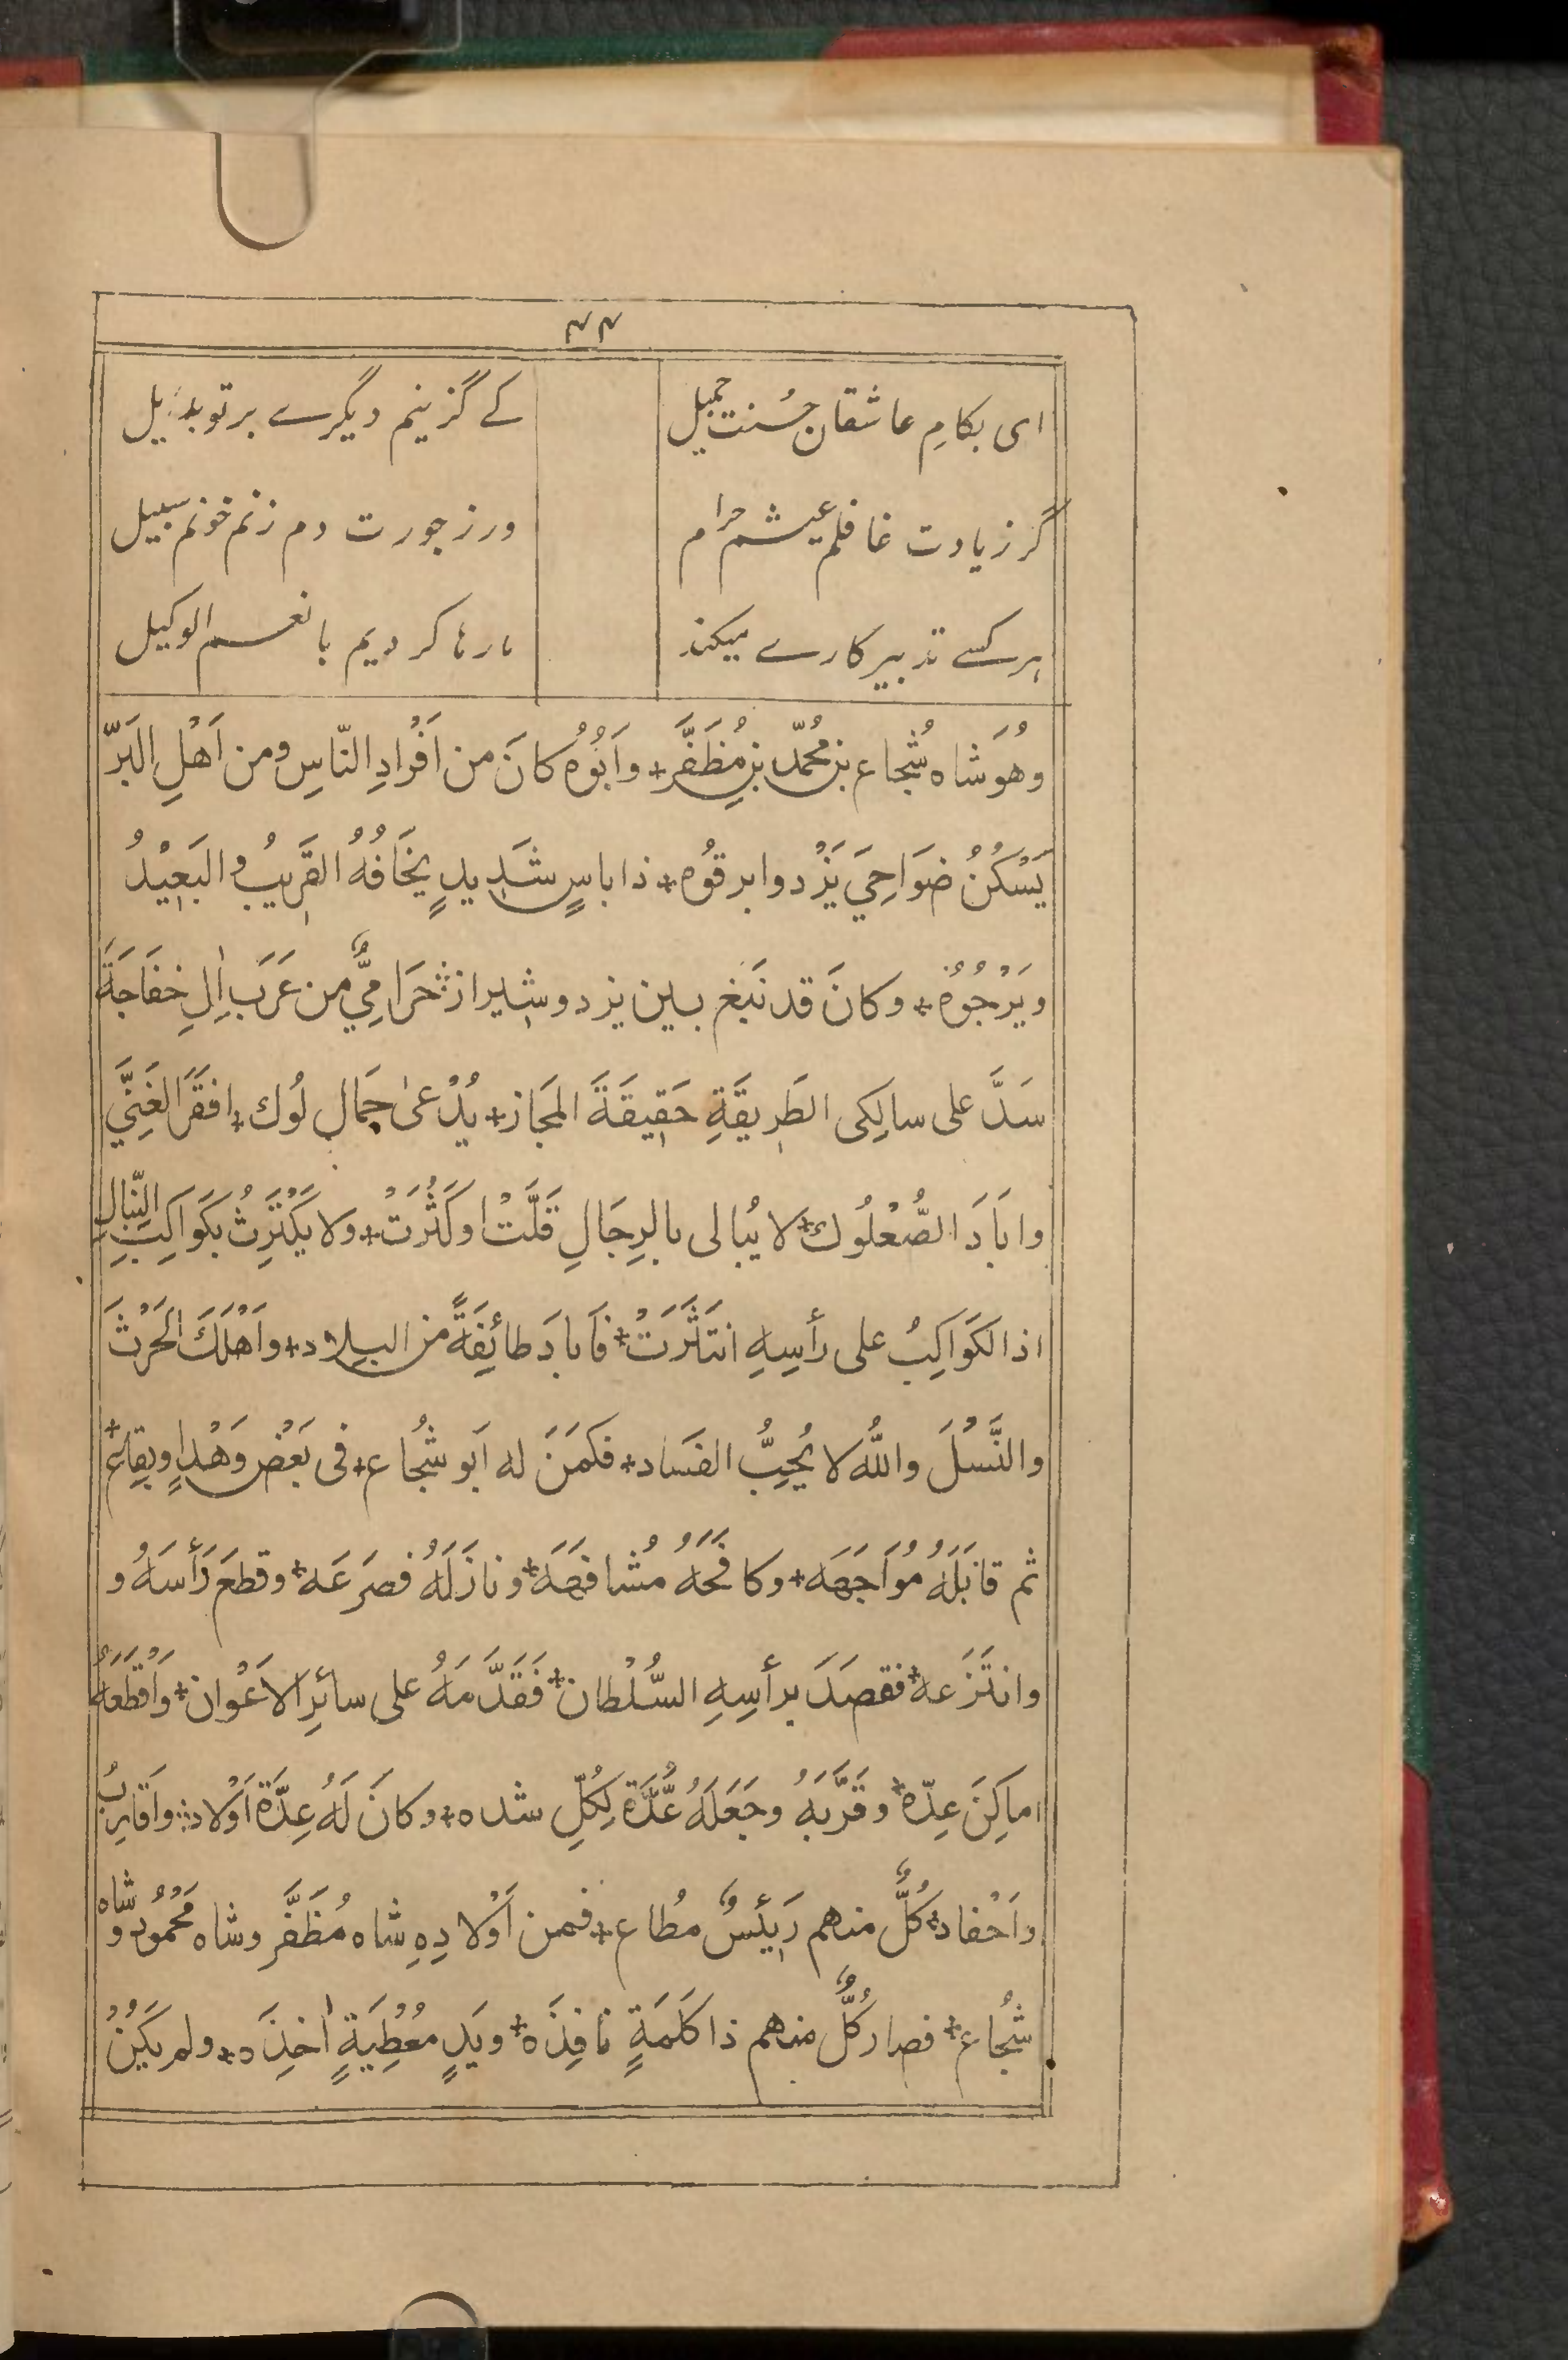 ۴۴
ای بکامِ عاشقان حُسنت جمیل کے گزینم دیگرے بر تو بدیل
گر ز یادت غافلم عیشم حرام ور ز جورت دم زنم خونم سبیل
ہر کسے تدبیر کارے میکند ما رہا کردیم با نعم الوکیل
وهُوَ شاه شُجاع بن مُحمّد بن مُظَفَّر + واَبُوْهُ كانَ من اَفْرادِ النّاسِ ومن اَهْلِ البَرّ
يَسْكُنُ ضَوَاحِيَ يَزْد وابرقُوه + ذا باسٍ شَدِيدٍ يخَافُهُ القَرِيبُ والبَعِيْدُ
ويَرْجُوْهُ + وكانَ قد نَبَغ بين يزد وشيراز + حَرَامِيٌّ من عَرَب اٰلِ خفَاجَةَ
سَدَّ على سالِكى الطَرِيقَةِ حَقِيقَةَ المَجاز + يُدْعىٰ جمَال لُوك + افقَرَ الغَنِيَّ
واَبَادَ الصُّعْلُوك + لا يُبالى بالرِجَالِ قَلَّتْ او كَثُرَتْ + ولا يَكْتَرِثُ بكَواكِبِ النِّبالِ
اذا الكَوَاكِبُ على رأسِهِ انتَثَرَتْ + فَابادَ طائِفَةً من البلاد + واَهْلَكَ الحَرْثَ
والنَّسْلَ واللّٰهُ لا يُحِبُّ الفَساد + فكمَنَ له اَبو شُجاع + فى بَعْضِ وَهْدٍ اوبِقاع +
ثم قابَلَهُ مُوَاجَهَه + وكافَحَهُ مُشافَهَه + ونازَلَهُ فصَرَعَه + وقطعَ رَأسَهُ و
وانتَزَعه + فقصَدَ برأسِهِ السُّلْطان + فَقَدَّمَهُ على سائرِ الاَعْوان + واَقْطَعَهُ
اماكِنَ عِدّه + وقَرَّبَهُ وجَعَلَهُ عُدَّةً لِكُلِّ شده + وكانَ لَهُ عِدَّةُ اَوْلاد + واَقارِبُ
واَحْفاد + كُلٌّ منهم رَئِيسٌ مُطاع + فمن اَوْلادِهِ شاه مُظَفَّر وشاه مَحْمُود و شاه
شُجاع + فصار كُلٌّ منهم ذا كَلَمَةٍ نافِذَه + ويَدٍ مُعْطِيَةٍ اٰخِذَه + ولم يَكُنْ